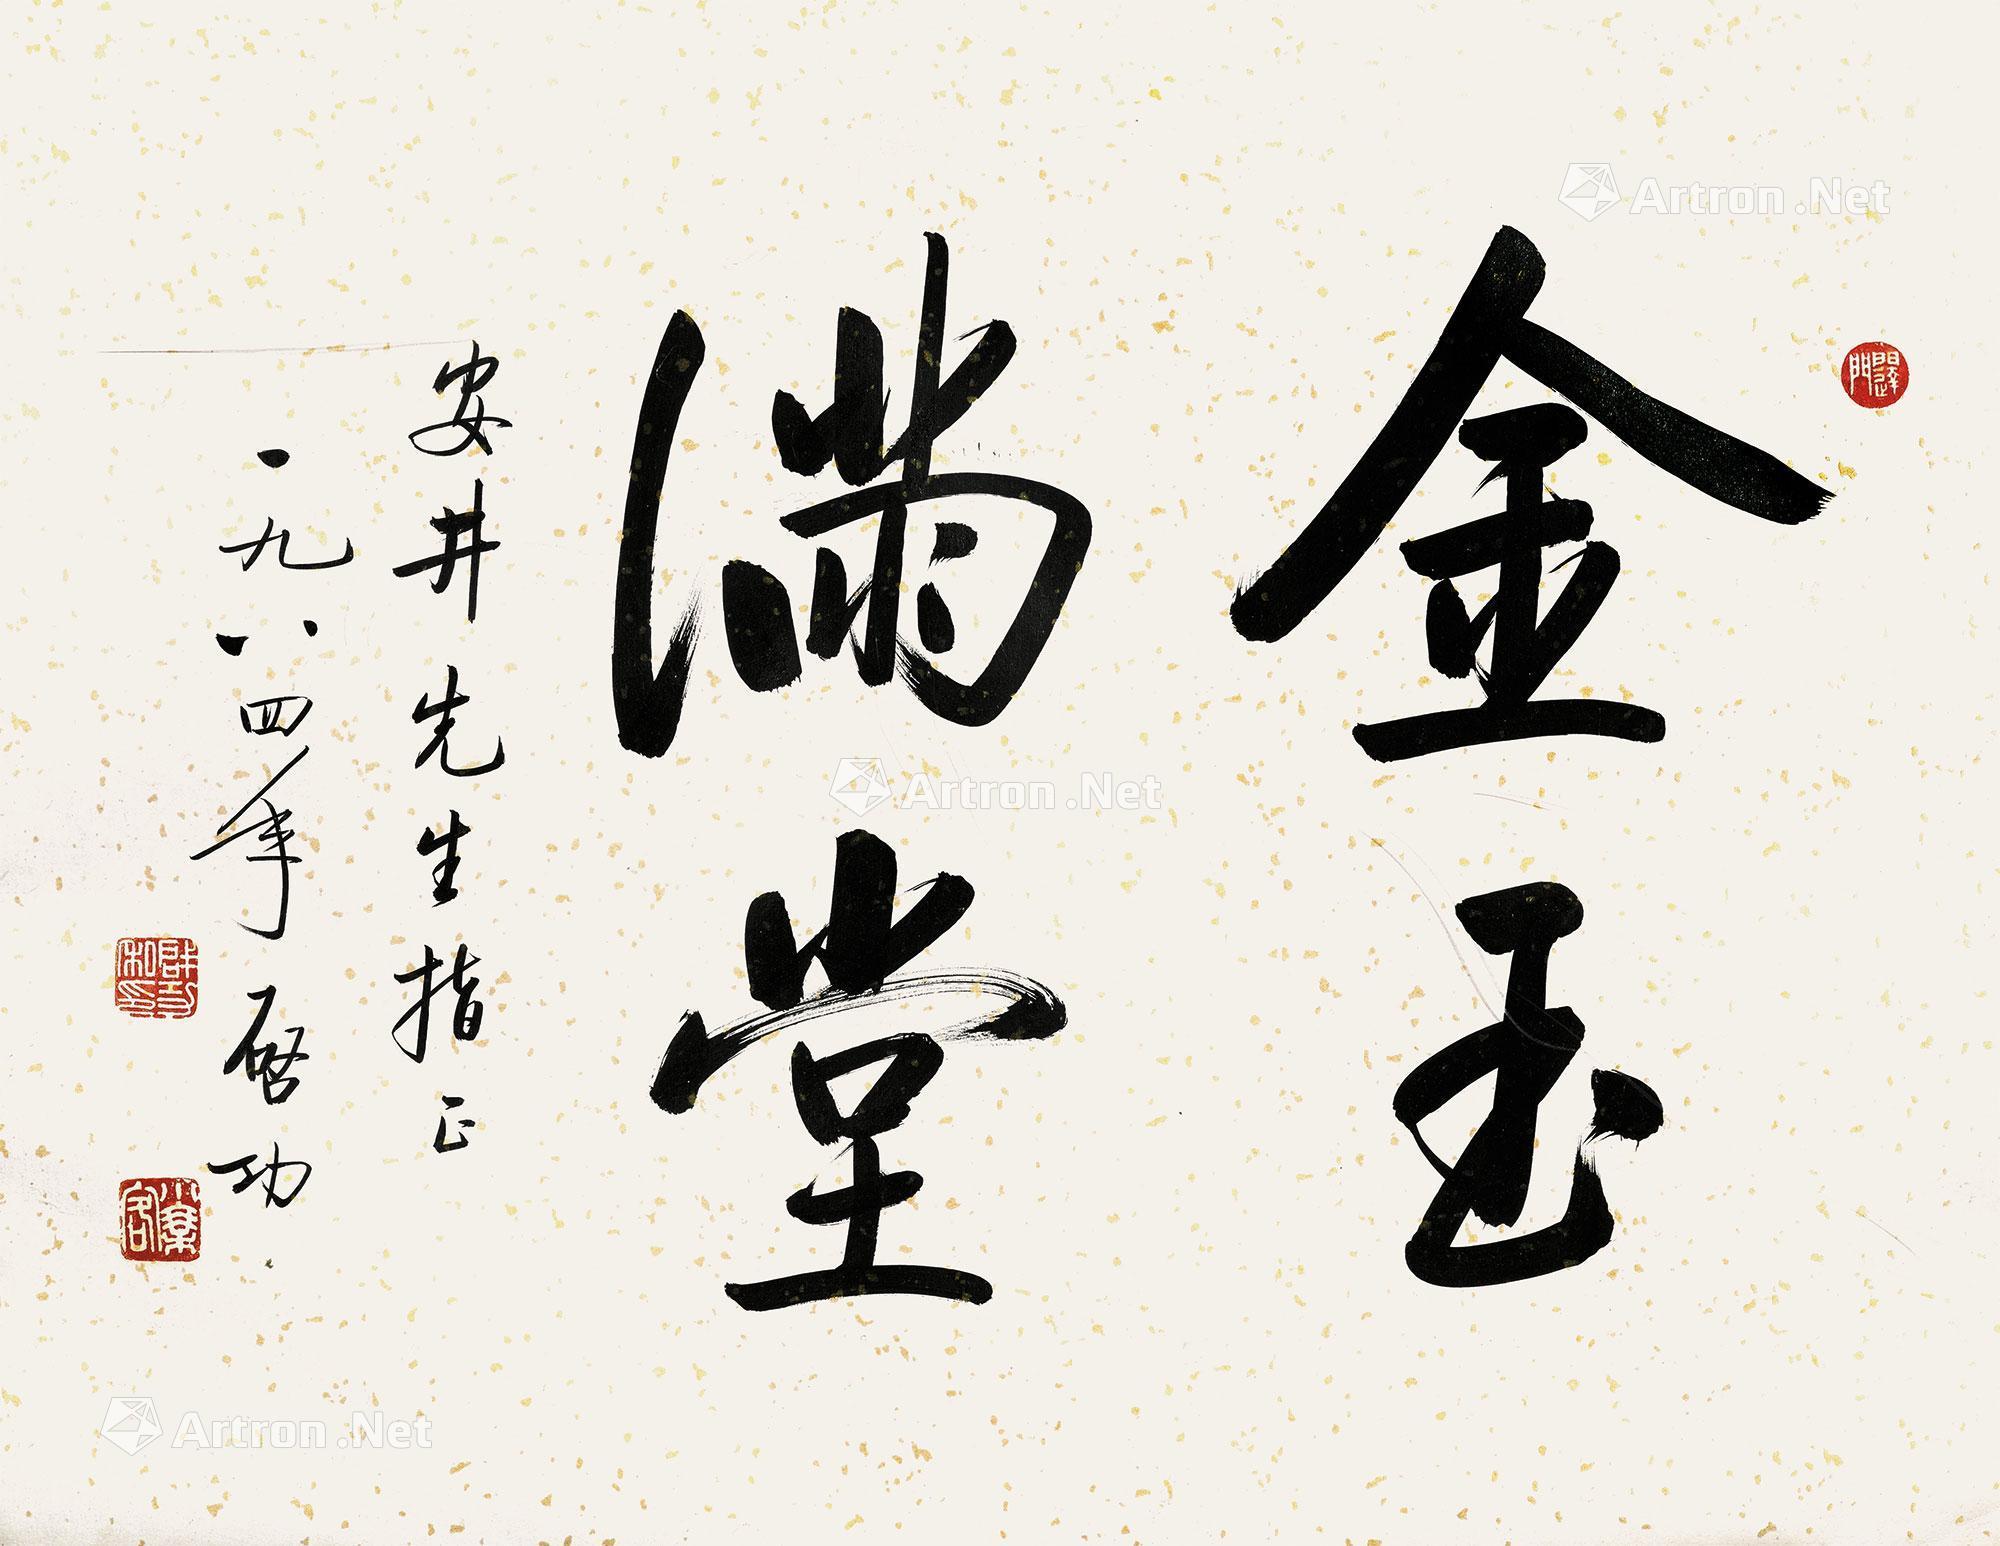 金玉
满堂
安井先生指正
一九八四年 启功
Artron.Net
Artron.Net
Artron.Net